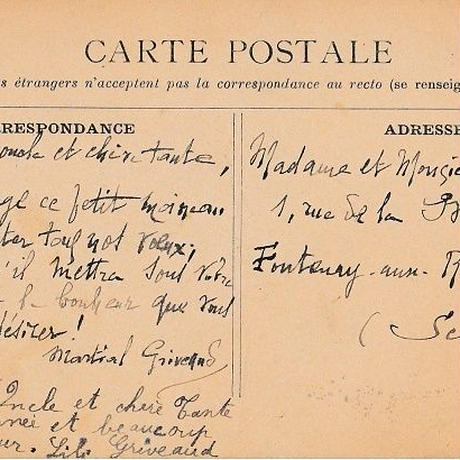 CARTE POSTALE
s étrangers n'acceptent pas la correspondance au recto (se renseig
RRESPONDANCE
ADRESSE
oncle et chère tante,
ge ce petit moineau
ter tous nos vœux,
'il mettra sous votre
le bonheur que vous
désirer!
Martial Griveaud
Oncle et chère Tante
née et beaucoup
ur. Lili Griveaud
Madame et Monsie
1, rue de la
Fontenay-aux-R
(Se